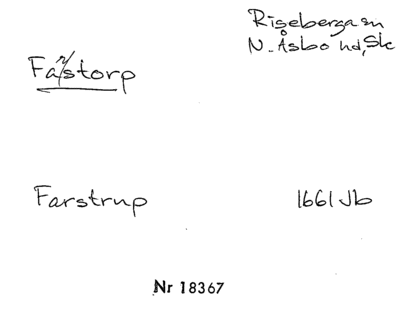 Riseberga sn
N. Åsbo hd, Sk
Farstorp
Farstrup 1661 Jb
Nr 18367